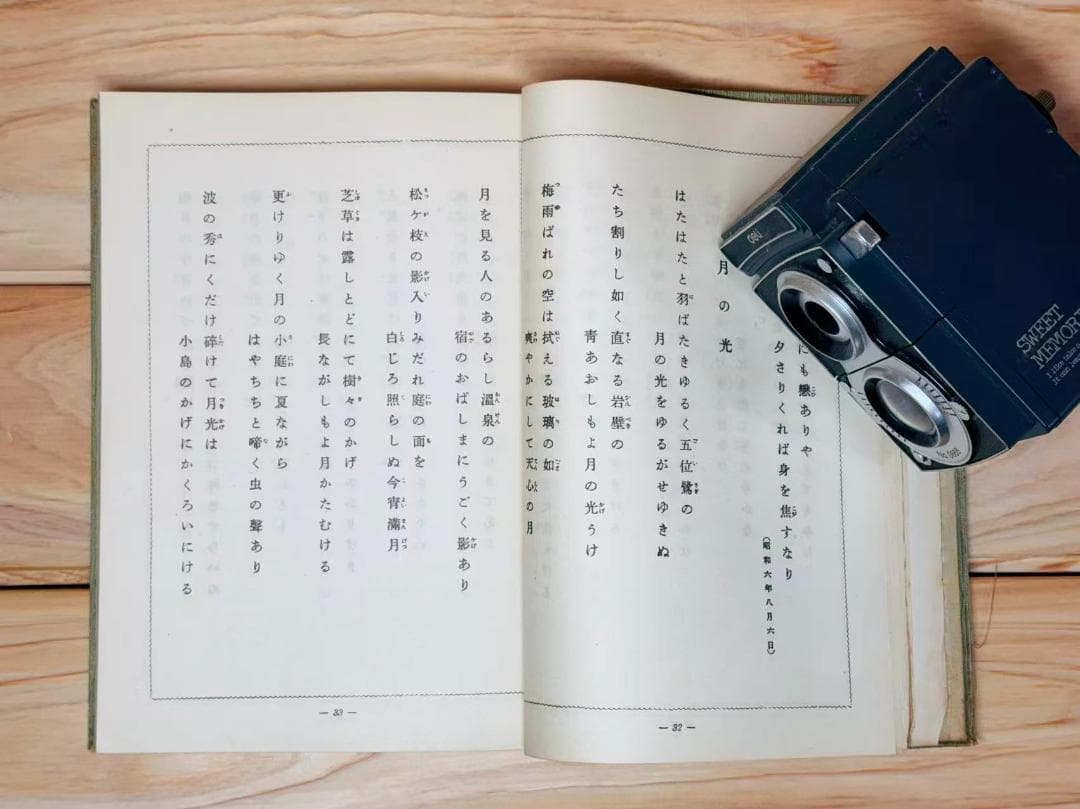 にも戀ありや
夕さりくれば身を焦すなり
(昭和六年八月六日)
月の光
はたはたと羽ばたきゆるく五位鷺の
月の光をゆるがせゆきぬ
たち割りし如く直なる岩壁の
靑あおしもよ月の光うけ
梅雨ばれの空は拭える玻璃の如
爽やかにして天心の月
— 32 —
月を見る人のあるらし溫泉の
宿のおばしまにうごく影あり
松ヶ枝の影入りみだれ庭の面を
白じろ照らしぬ今宵滿月
芝草は露しとどにて樹々のかげ
長ながしもよ月かたむける
更けりゆく月の小庭に夏ながら
はやちちと啼く虫の聲あり
波の秀にくだけ碎けて月光は
小島のかげにかくろいにける
— 33 —
080
SWEET
MEMOR